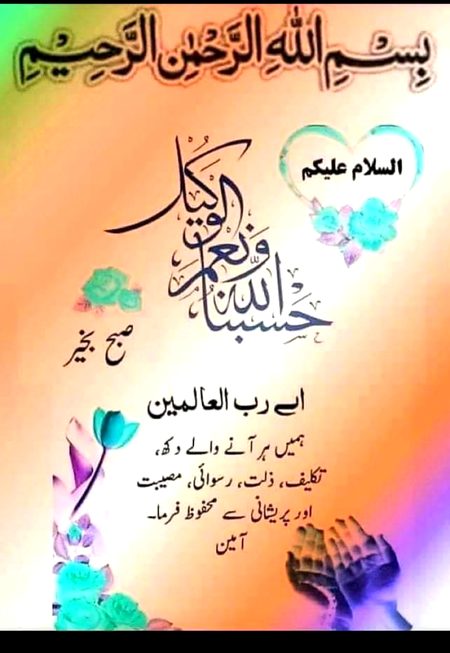 بِسْمِ اللهِ الرَّحْمٰنِ الرَّحِيْمِ
السلام علیکم
حسبنا الله ونعم الوكيل
صبح بخیر
اے رب العالمین
ہمیں ہر آنے والے دکھ،
تکلیف، ذلت، رسوائی، مصیبت
اور پریشانی سے محفوظ فرما۔
آمین